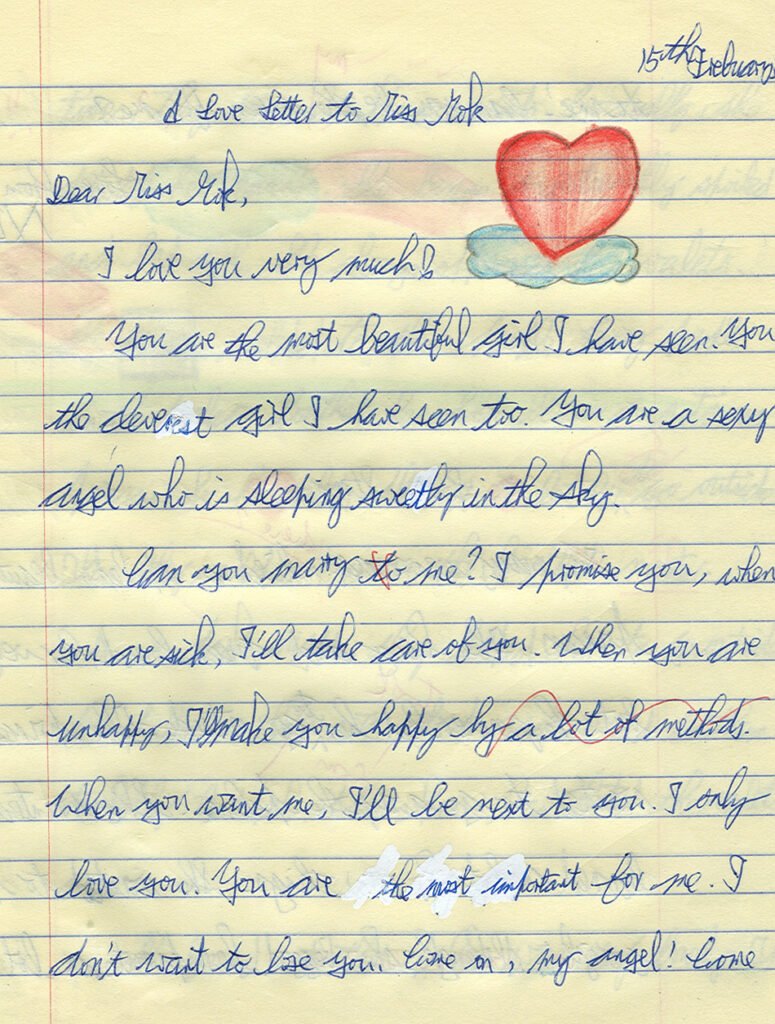 15th February
A Love Letter to Miss Mok
Dear Miss Mok,
I love you very much!
You are the most beautiful girl I have seen. You
the cleverest girl I have seen too. You are a sexy
angel who is sleeping sweetly in the sky.
Can you marry to me? I promise you, when
you are sick, I'll take care of you. When you are
unhappy, I'll make you happy by a lot of methods.
When you want me, I'll be next to you. I only
love you. You are the most important for me. I
don't want to lose you. Come on, my angel! Come